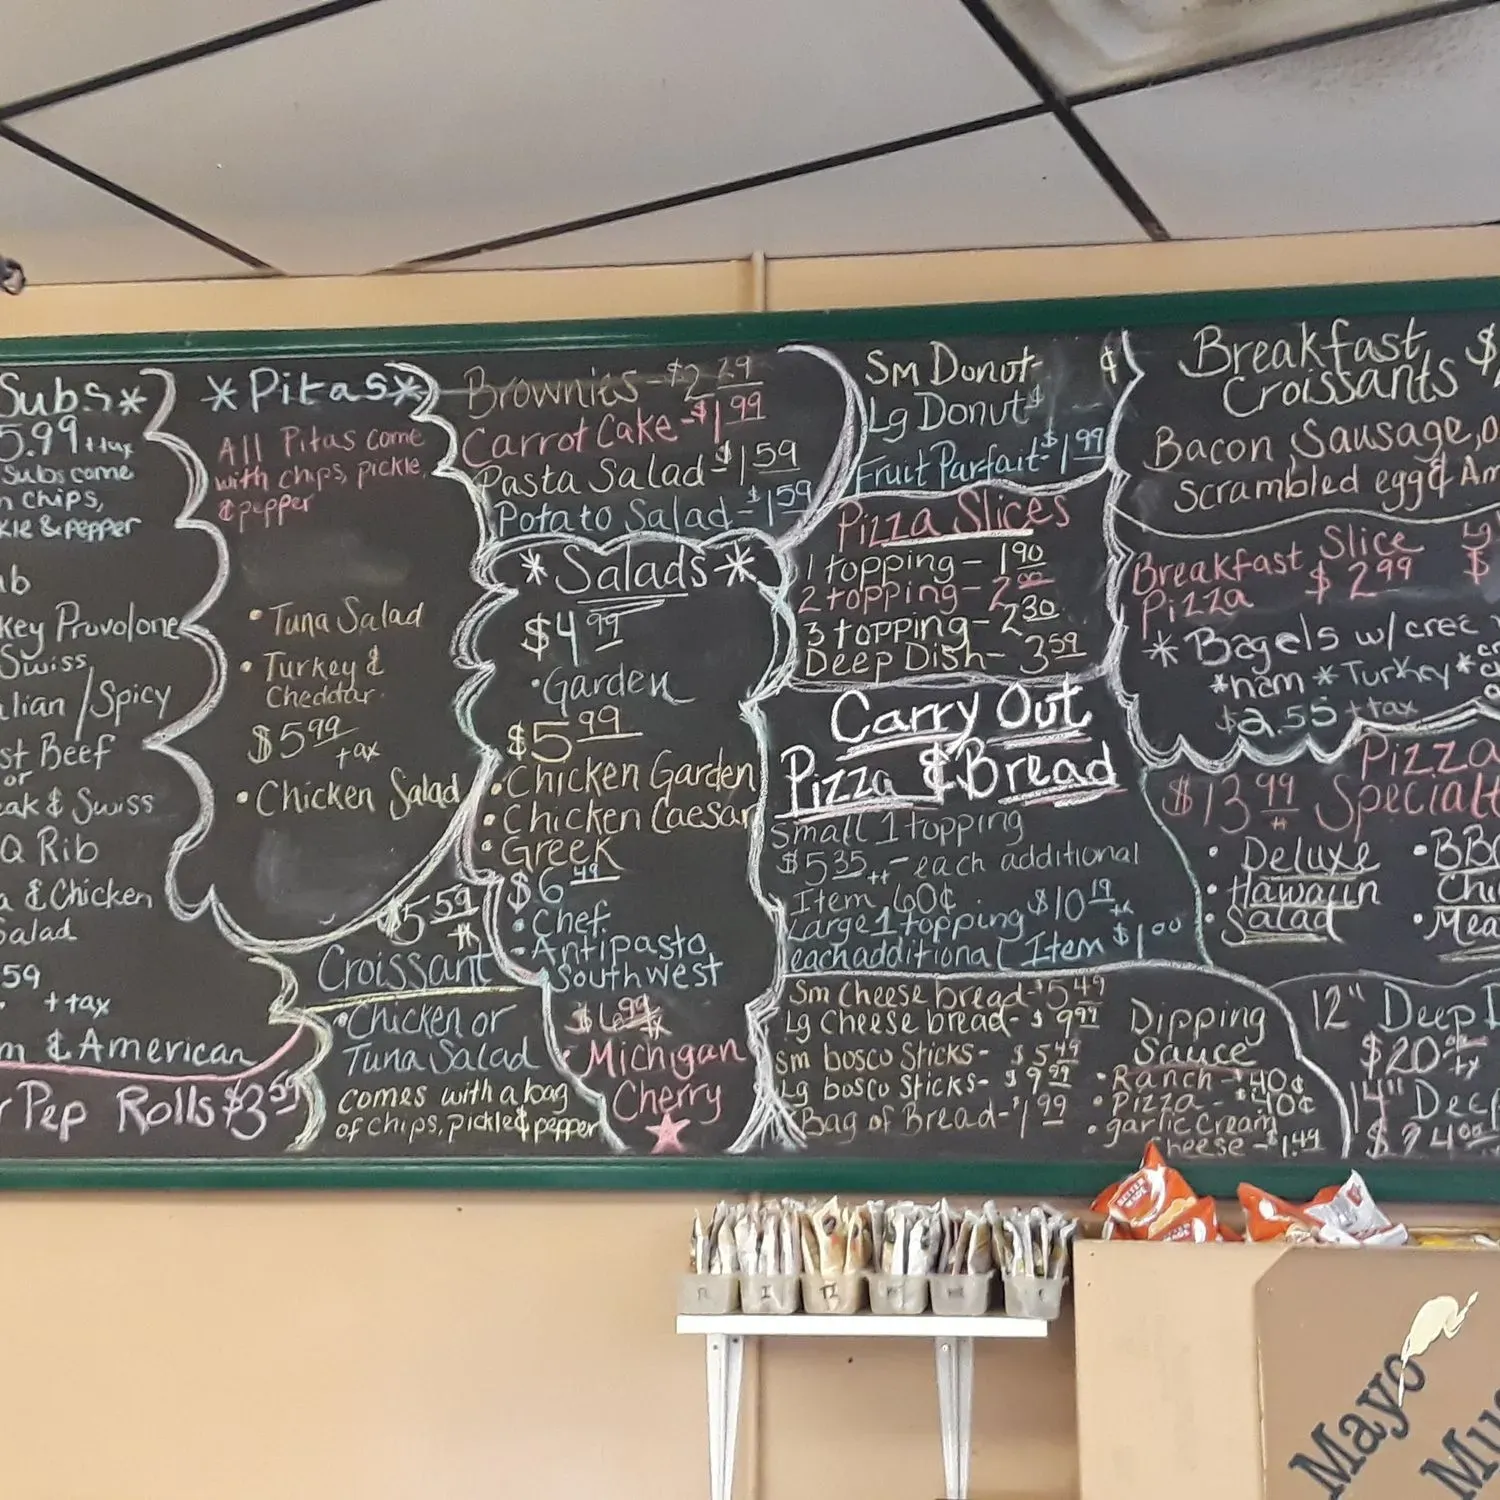 Subs*
5.99 + tax
Subs come
chips,
& pepper
Provolone
Swiss
/Spicy
Beef
or
& Swiss
Q Rib
& Chicken
Salad
59
+ tax
& American
Pep Rolls $3.59
*Pitas*
All Pitas come
with chips, pickle,
& pepper
• Tuna Salad
• Turkey &
Cheddar
$5.99
+ tax
• Chicken Salad
$5.59
Croissant
• Chicken or
Tuna Salad
comes with a bag
of chips, pickle & pepper
Brownies - $2.29
Carrot Cake - $1.99
Pasta Salad - $1.59
Potato Salad - $1.59
*Salads*
$4.99
• Garden
$5.99
• Chicken Garden
• Chicken Caesar
• Greek
$6.49
• Chef
• Antipasto
• Southwest
$6.99
• Michigan
Cherry
Sm Donut - ¢
Lg Donut $
Fruit Parfait - $1.99
Pizza Slices
1 topping - 1.90
2 topping - 2.00
3 topping - 2.30
Deep Dish - 3.59
Carry Out
Pizza & Bread
Small 1 topping
$5.35 - each additional
Item 60¢
Large 1 topping $10.19
each additional Item $1.00
Sm Cheese bread - $5.49
Lg Cheese bread - $9.99
Sm bosco Sticks - $5.49
Lg bosco Sticks - $9.99
Bag of Bread - $1.99
Dipping
Sauce
• Ranch - 40¢
• Pizza - 40¢
• garlic cream
cheese - $1.49
Breakfast $
Croissants
Bacon, Sausage,
Scrambled egg &
Breakfast Slice
Pizza $2.99 $
* Bagels w/
* Turkey *
$2.55 + tax
Pizza
$13.99
• Deluxe
• Hawaiin
• Salad
• BBQ
•
12" Deep
$20
14" Deep
$24.00
BETTER MADE
Mayo